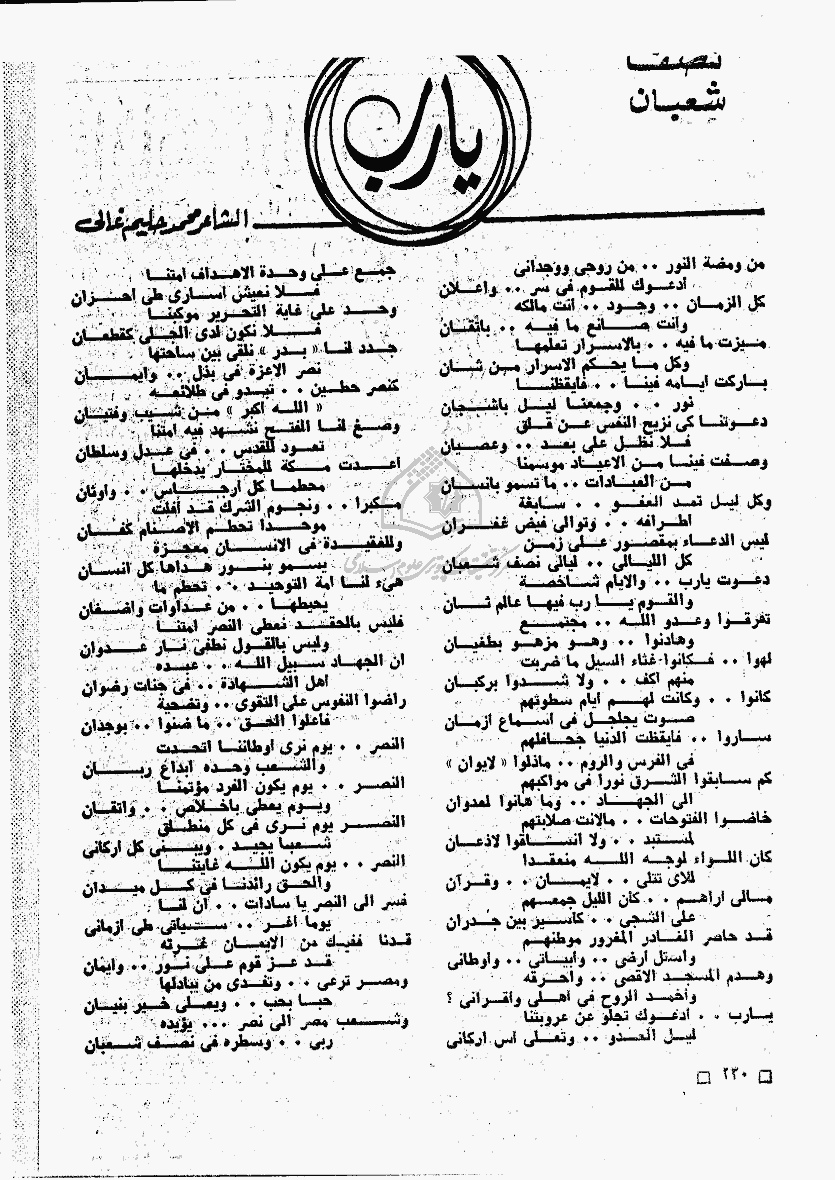 نصف
شعبان
يارب
الشاعر محمد حليم غالى
من ومضة النور .. من روحى ووجدانى
أدعوك للقوم فى سر .. واعلان
كل الزمان .. وجود .. أنت مالكه
وأنت صانع ما فيه .. باتقان
ميزت ما فيه .. بالأسرار تعلمها
وكل ما يحكم الأسرار من شان
باركت أيامه فينا .. فأيقظنا
نور .. وجمعنا ليل بأشجان
دعوتنا كى نزيح النفس عن قلق
فلا نظل على بعد .. وعصيان
وصفت فينا من الأعياد موسمنا
من العبادات .. ما تسمو بانسان
وكل ليل تمد العفو .. سابغة
أطرافه .. وتوالى فيض غفران
ليس الدعاء بمقصور على زمن
كل الليالى .. ليالى نصف شعبان
دعوت يارب .. والأيام شاخصة
والقوم يا رب فيها عالم ثان
تفرقوا وعدو الله .. مجتمع
وهادنوا .. وهو مزهو بطغيان
لهوا .. فكانوا غثاء السيل ما ضربت
منهم أكف .. ولا شدوا بركبان
كانوا .. وكانت لهم أيام سطوتهم
صوت يجلجل فى أسماع أزمان
ساروا .. فأيقظت الدنيا جحافلهم
فى الفرس والروم .. ماذلوا « لايوان »
كم سابقوا الشرق نورا فى مواكبهم
الى الجهاد .. وما هانوا لعدوان
خاضوا الفتوحات .. مالانت صلابتهم
لمستبد .. ولا انساقوا لاذعان
كان اللواء لوجه الله منعقدا
للآى تتلى .. لايمان .. وقرآن
مالى أراهم .. كأن الليل جمعهم
على الشجى .. كأسير بين جدران
قد حاصر الغادر المغرور موطنهم
واستل أرضى .. وأبياتى .. وأوطانى
وهدم المسجد الأقصى .. وأحرقه
وأخمد الروح فى أهلى وأقرانى ؟
يارب .. أدعوك تجلو عن عروبتنا
ليل العدو .. وتعلى أس أركانى
جمع على وحدة الأهداف أمتنا
فلا نعيش أسارى طى أحزان
وحد على غاية التحرير موكبنا
فلا نكون لدى الجلى كقطعان
جدد لنا « بدر » نلقى بين ساحتها
نصر الأعزة فى بذل .. وايمان
كنصر حطين .. تبدو فى طلائعه
« الله أكبر » من شيب وفتيان
وصغ لنا الفتح نشهد فيه أمتنا
تعود للقدس .. فى عدل وسلطان
أعدت مكة للمختار يدخلها
محطما كل أرجاس .. وأوثان
مكبرا .. ونجوم الشرك قد أفلت
موحدا تحطم الأصنام كفان
وللعقيدة فى الانسان معجزة
يسمو بنور هداها كل انسان
هىء لنا أمة التوحيد .. تحطم ما
يحيطها .. من عداوات وأضغان
فليس بالحقد نعطى النصر أمتنا
وليس بالقول نطفى نار عدوان
ان الجهاد سبيل الله .. عبده
أهل الشهادة .. فى جنات رضوان
راضوا النفوس على التقوى .. وتضحية
فأعلوا الحق .. ما ضنوا .. بوجدان
النصر .. يوم نرى أوطاننا اتحدت
والشعب وحده ابداع ربان
النصر .. يوم يكون الفرد مؤتمنا
ويوم يعطى باخلاص .. واتقان
النصر يوم نرى فى كل منطلق
شعبا يجيد . ويبنى كل أركانى
النصر .. يوم يكون الله غايتنا
والحق رائدنا فى كل ميدان
فسر الى النصر يا سادات .. ان لنا
يوما أغر .. سيأتى طى أزمانى
قدنا ففيك من الايمان غرته
قد عز قوم على نور .. وايمان
ومصر ترعى .. وتفدى من يبادلها
حبا بحب .. ويعلى خير بنيان
وشعب مصر الى نصر ... يؤيده
ربى .. وسطره فى نصف شعبان
□ ٢٣٠ □